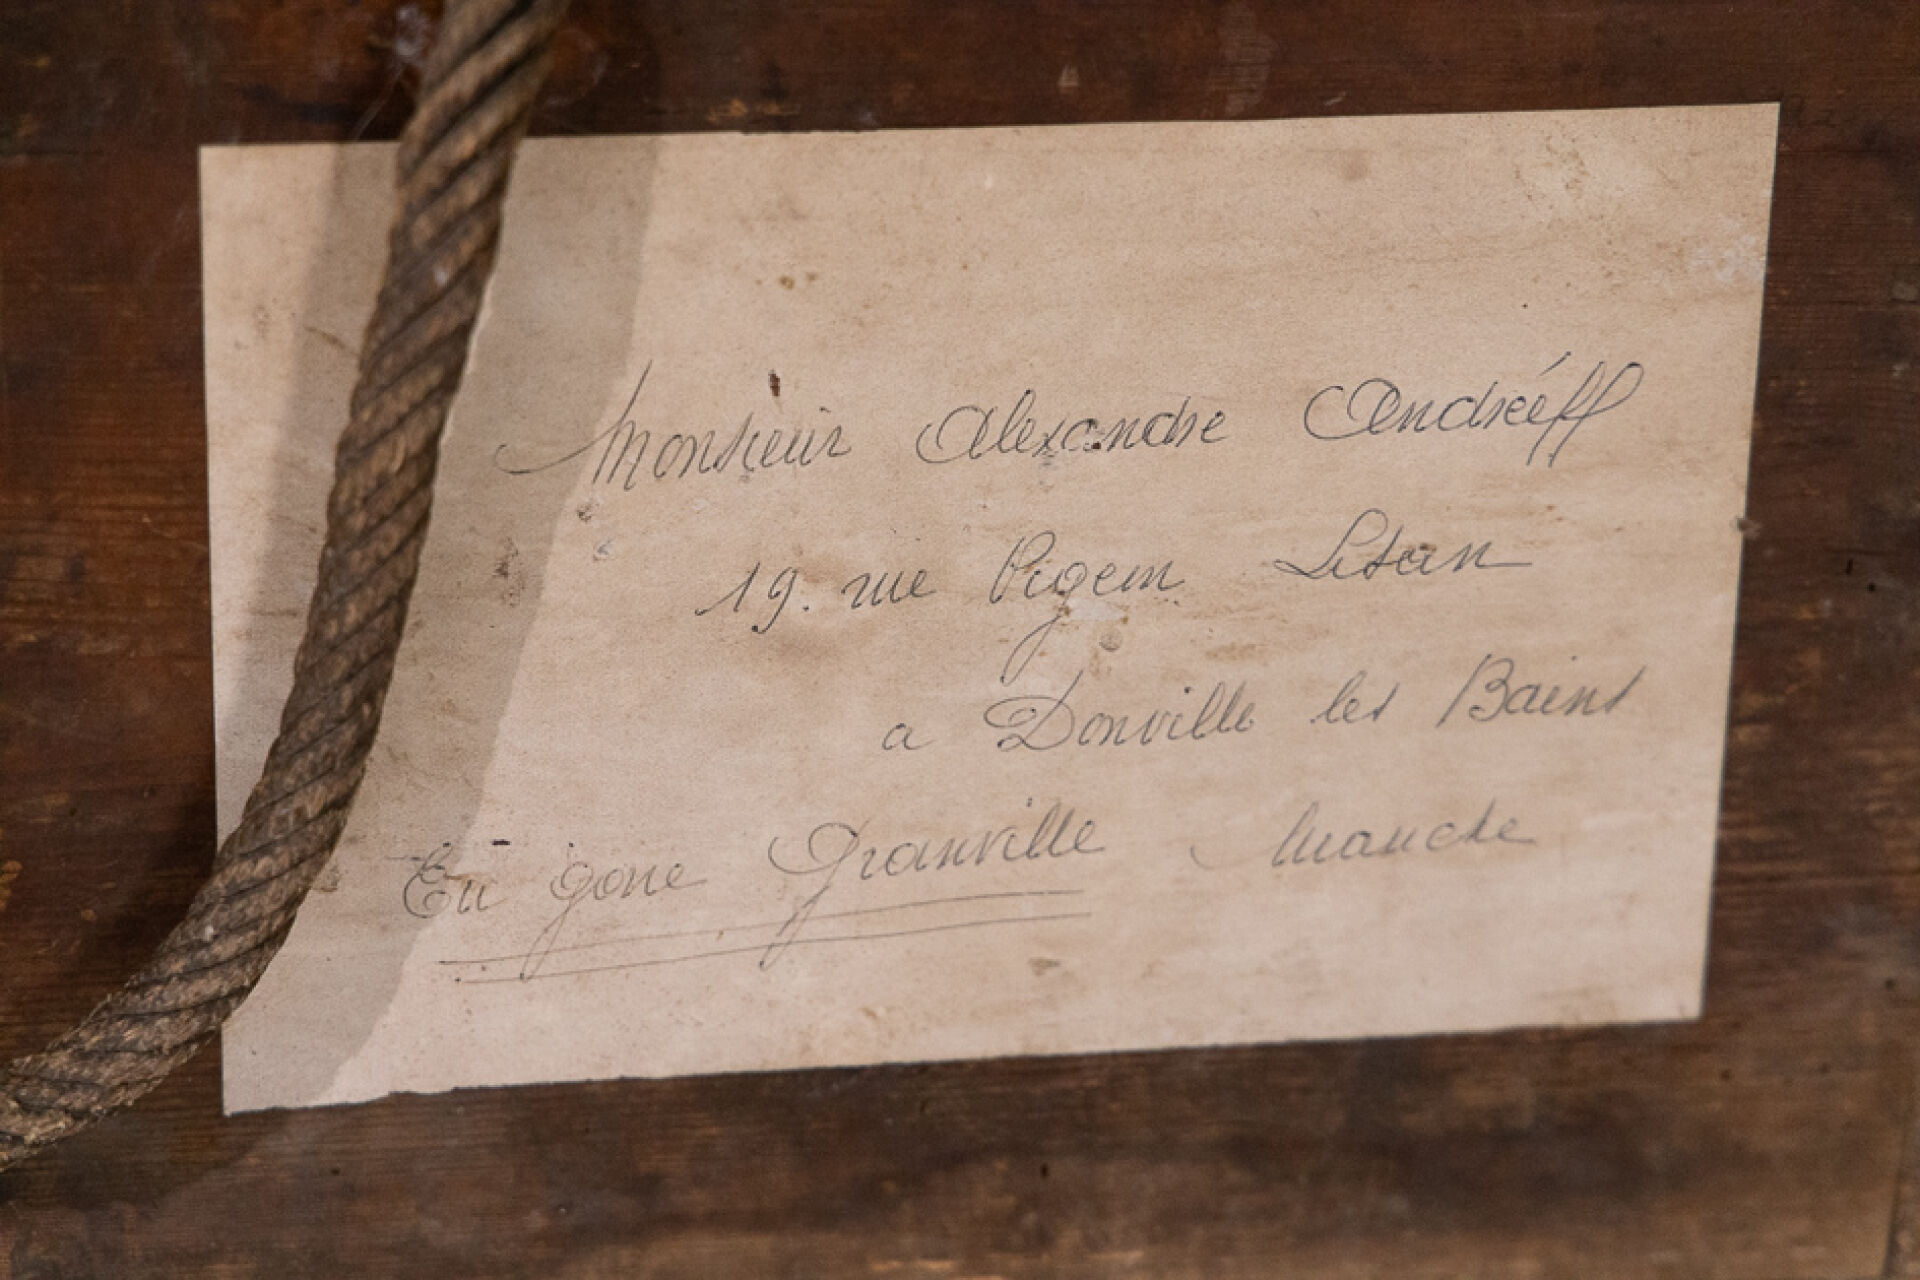 Monsieur Alexandre Andréeff
19. rue Pigeon Litan
a Donville les Bains
En gare Granville Manche